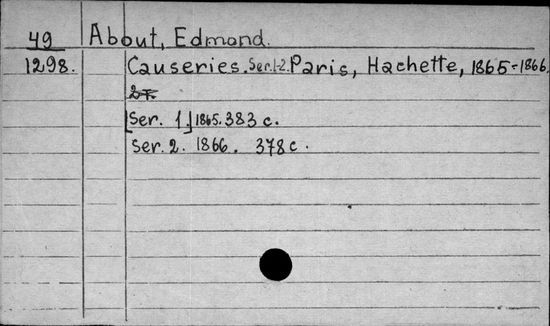 49 About, Edmond.
1298. Causeries. Ser. 1-2. Paris, Hachette, 1865-1866.
2 т.
[Ser. 1.] 1865. 383 c.
Ser. 2. 1866. 378 c.